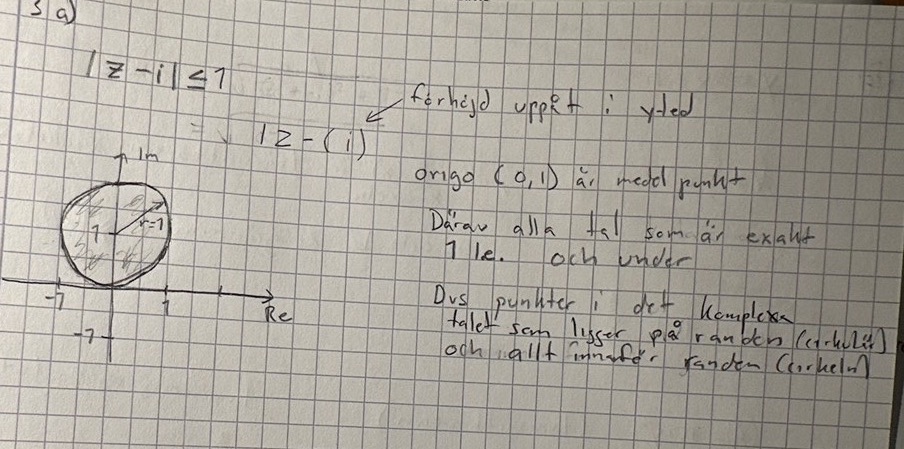 3 a)
|z-i| ≤ 1
förhöjd uppåt i yled
|z-(i)
Im
origo (0,1) är medd punkt
r=1
1
Därav alla tal som är exakt
1 le. och under
-1
1
Re
-1
Dvs punkter i det komplexa
talet som ligger på randen (cirkulär)
och allt innanför randen (cirkeln)